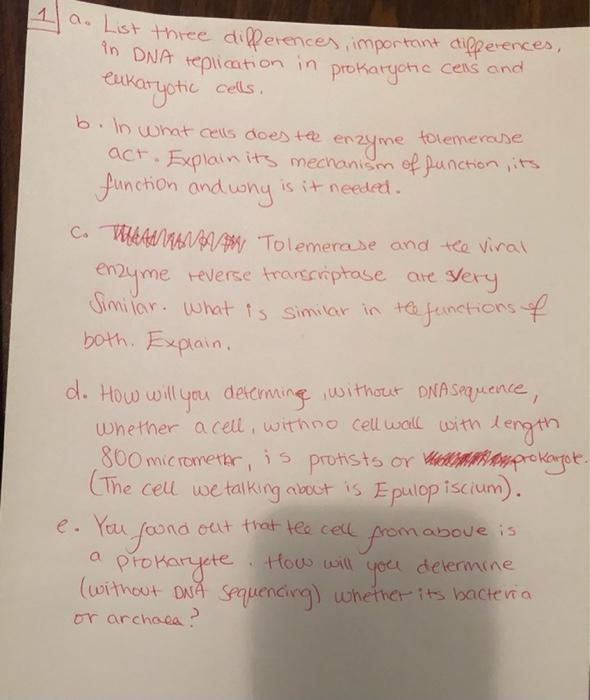 1 a. List three differences, important differences,
in DNA replication in prokaryotic cells and
eukaryotic cells.
b. In what cells does the enzyme tolemerase
act. Explain its mechanism of function, its
function and why is it needed.
c. Tolemerase and the viral
enzyme reverse transcriptase are very
similar. What is similar in the functions of
both. Explain.
d. How will you determine, without DNA sequence,
whether a cell, with no cell wall with length
800 micrometer, is protists or prokaryote.
(The cell we talking about is Epulopiscium).
e. You found out that the cell from above is
a prokaryote. How will you determine
(without DNA sequencing) whether its bacteria
or archaea?